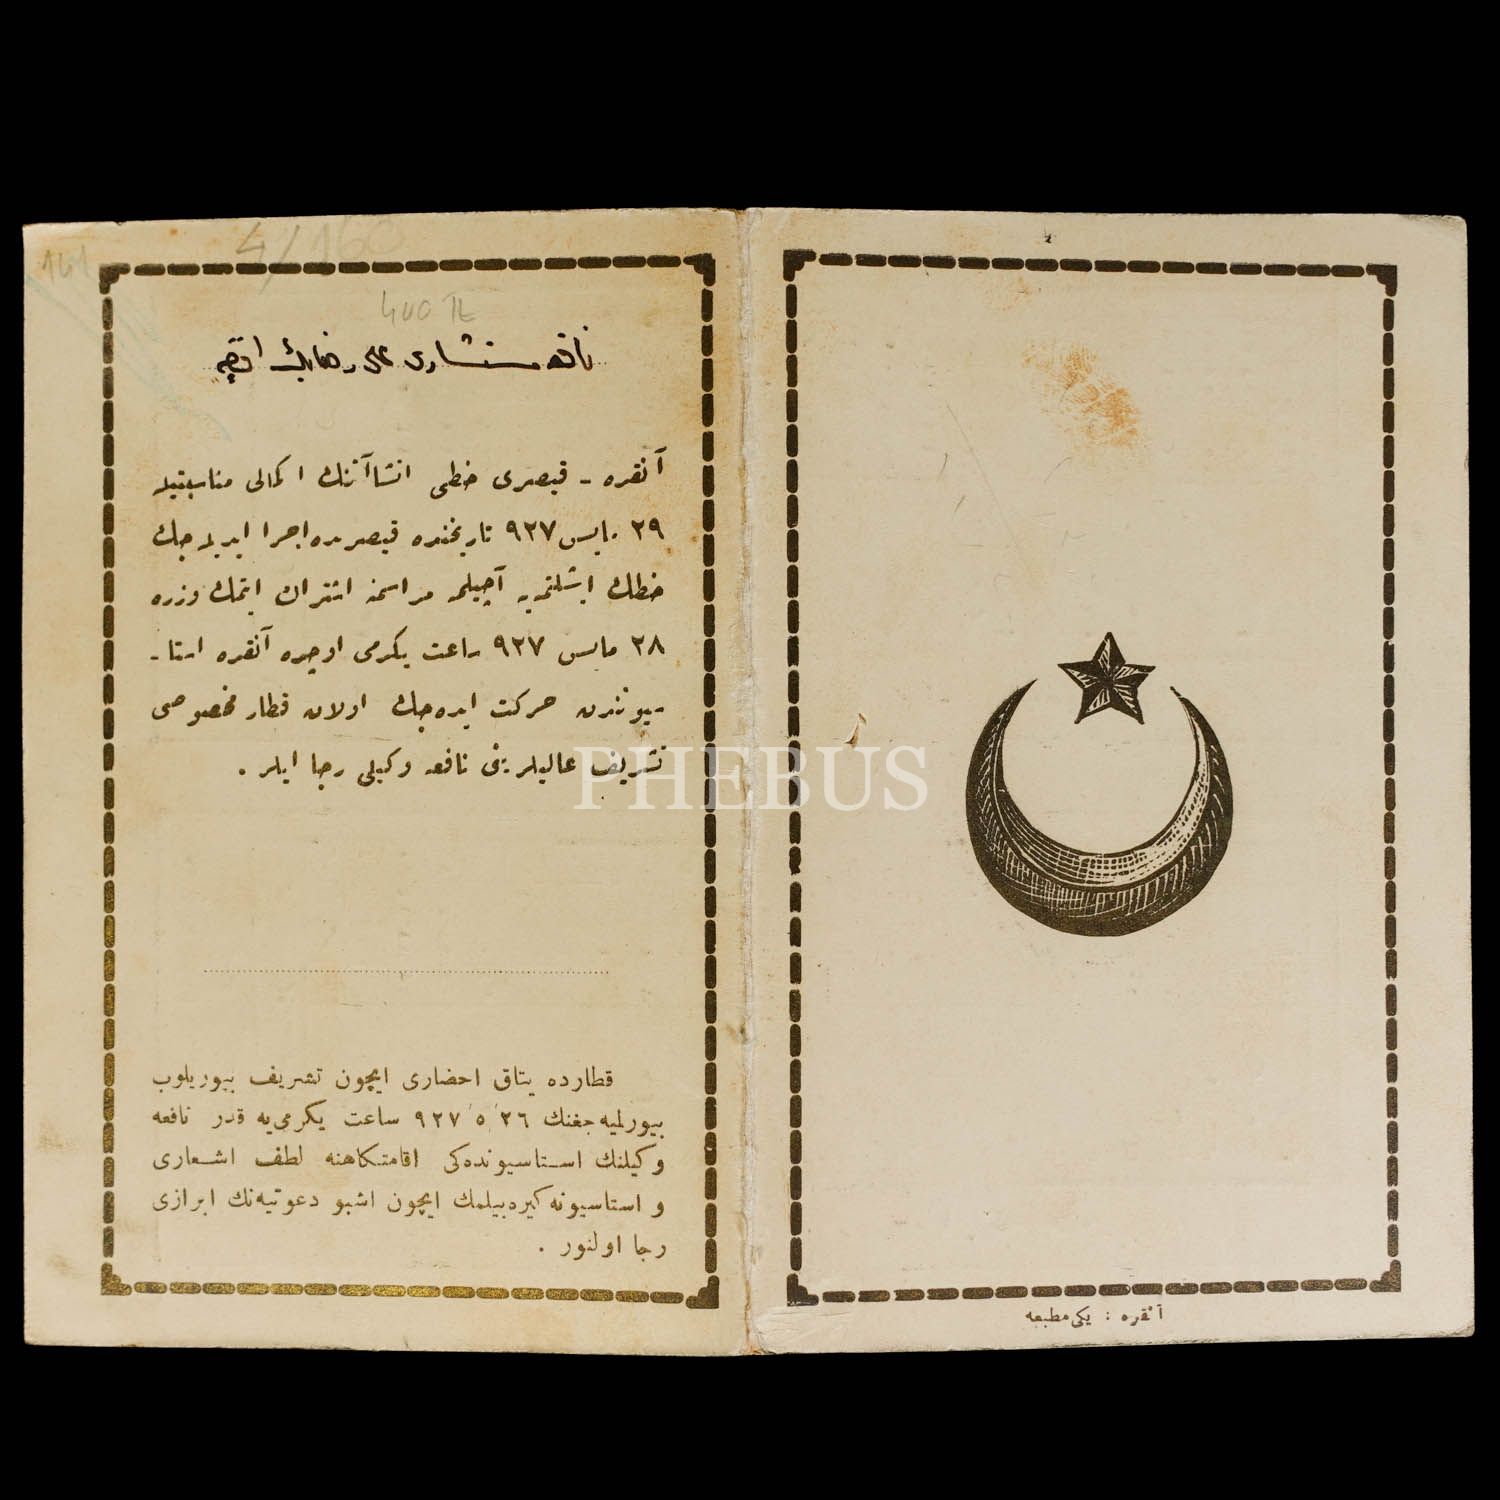 4/160
161
400 TL
نافعه مستشاری علی رضا بك افندی یه
آنقره - قیصری خطی انشاآتنك اكمالی مناسبتیله
٢٩ مایس ٩٢٧ تاریخنده قیصریده اجرا ایدیله جك
خطك ایشلتمیه آچیلمه مراسمنه اشتراك ایتمك اوزره
٢٨ مایس ٩٢٧ ساعت یكرمی اوچده آنقره استا-
سیوننندن حركت ایده جك اولان قطار مخصوصی
تشریف عالیلرینی نافعه وكیلی رجا ایلر .
قطارده یتاق احضاری ایچون تشریف بیوریلوب
بیورلمیه جغنك ٢٦/٥/٩٢٧ ساعت یكرمی یه قدر نافعه
وكیلنك استاسیونده كی اقامتكاهنه لطف اشعاری
و استاسیونه كیره بیلمك ایچون اشبو دعوتیه نك ابرازی
رجا اولنور .
آنقره : یكی مطبعه
PHEBUS